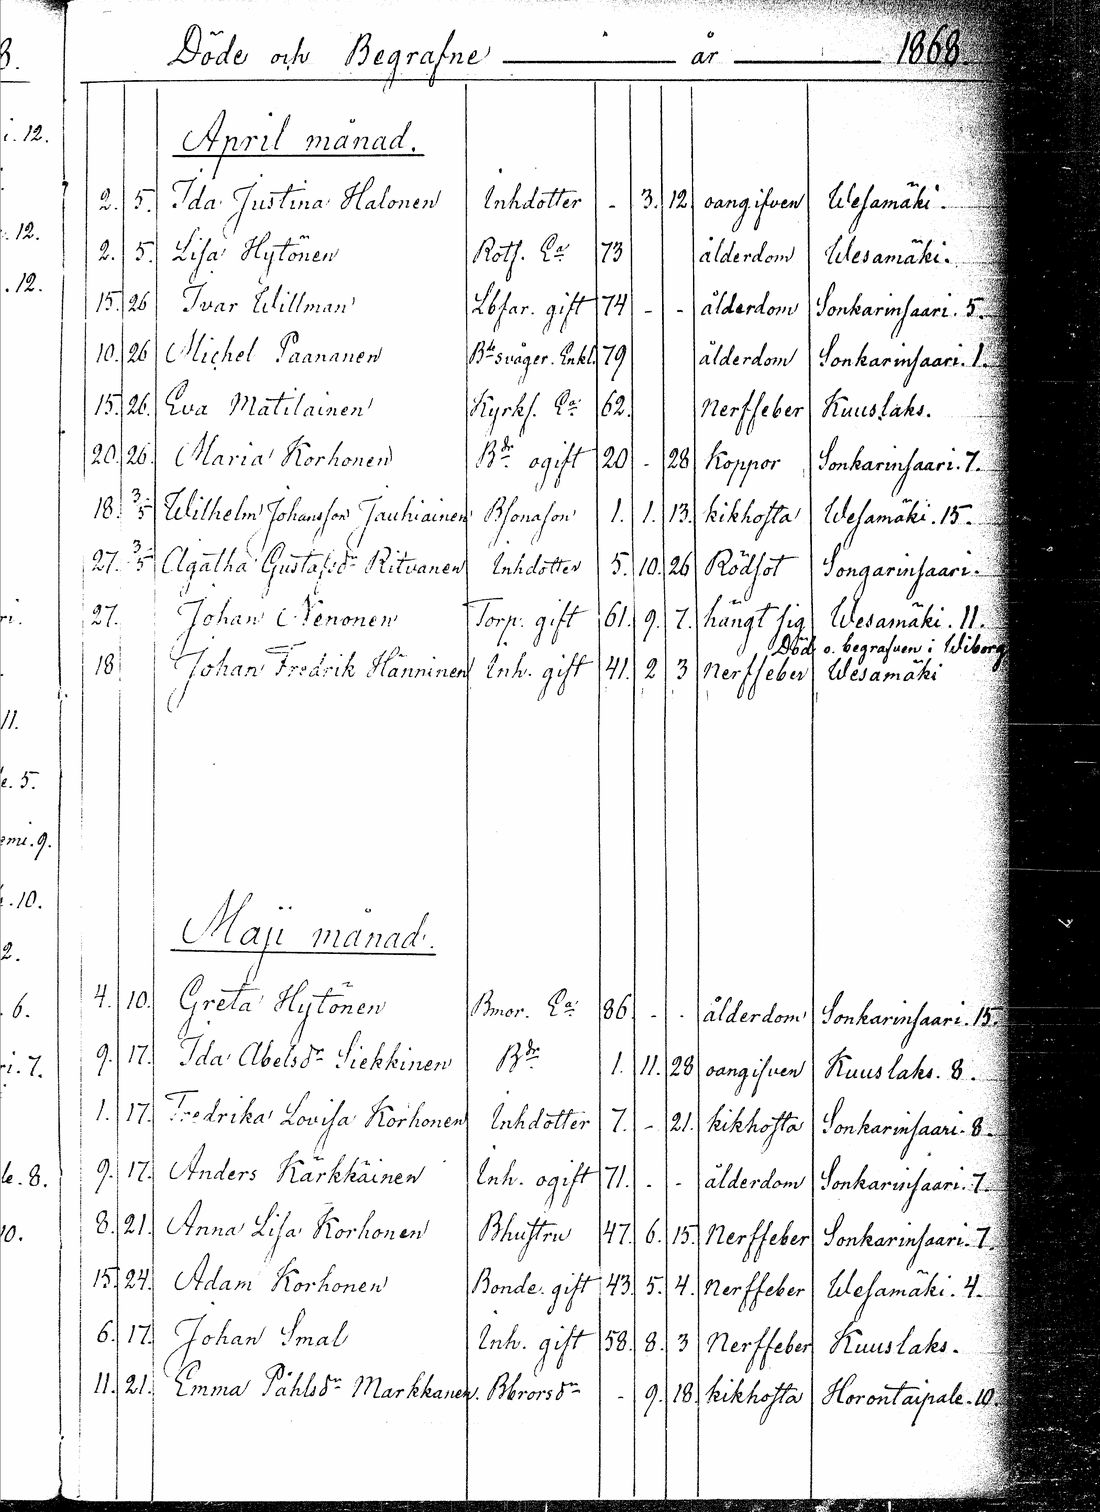 Döde och Begrafne år 1868.
April månad.
2. 5. Ida Justina Halonen Inhdotter - 3. 12 oangifven Wesamäki.
2. 5. Lisa Hytönen Rotf. Ea 73 ålderdom Wesamäki.
15. 26 Ivar Willman Lbfar. gift 74 - - ålderdom Sonkarinsaari. 5.
10. 26 Michel Paananen Bdesvåger. Enkl. 79 ålderdom Sonkarinsaari. 1.
15. 26. Eva Matilainen Kyrkf. Ea 62. Nerffeber Kuuslaks.
20. 26. Maria Korhonen Bdr. ogift 20 - 28 Koppor Sonkarinsaari. 7.
18. 3/5 Wilhelm Johansson Jauhiainen Bsonason 1. 1. 13. kikhosta Wesamäki. 15.
27. 3/5 Agatha Gustafsdr Ritvanen Inhdotter 5. 10. 26 Rödsot Songarinsaari.
27. Johan Nenonen Torp. gift 61. 9. 7. hängt sig Wesamäki. 11.
Död o. begrafven i Wiborg
18 Johan Fredrik Hänninen Inh. gift 41. 2 3 Nerffeber Wesamäki
Maji månad.
4. 10. Greta Hytönen Bmor. Ea 86 - - ålderdom Sonkarinsaari. 15.
9. 17. Ida Abelsdr Siekkinen Bdr 1. 11. 28 oangifven Kuuslaks. 8.
1. 17. Fredrika Lovisa Korhonen Inhdotter 7. - 21. kikhosta Sonkarinsaari. 8.
9. 17. Anders Kärkkäinen Inh. ogift 71. - - ålderdom Sonkarinsaari. 7.
8. 21. Anna Lisa Korhonen Bhustru 47. 6. 15. Nerffeber Sonkarinsaari. 7.
15. 24. Adam Korhonen Bonde. gift 43. 5. 4. Nerffeber Wesamäki. 4.
6. 17. Johan Smal Inh. gift 58. 8. 3 Nerffeber Kuuslaks.
11. 21. Emma Påhlsdr Markkanen. Bbrorsdr - 9. 18. kikhosta Horontaipale. 10.